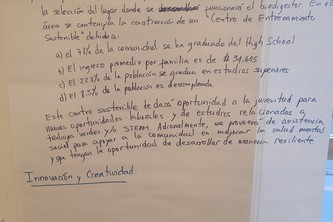 la selección del lugar donde se funcionará el biodigestor. En es
área se contempla la construcción de un "Centro de Entrenamiento
Sustenible" debido a:
a) el 78% de la comunidad se ha graduado del High School
b) El ingreso promedio por familia es de $34,685
c) El 22.8% de la población se gradua en estudios superiores
d) El 8.5% de la población es desempleada
Este centro sustenible te dará oportunidad a la juventud para
nuevas oportunidades laborales y de estudios relacionados a
trabajos verdes y/o STEAM. Adicionalmente, se proveerá de asistencia
social para apoyar a la comunidad en mejorar la salud mental
y que tengan la oportunidad de desarrollar de manera resiliente
Innovación y Creatividad: